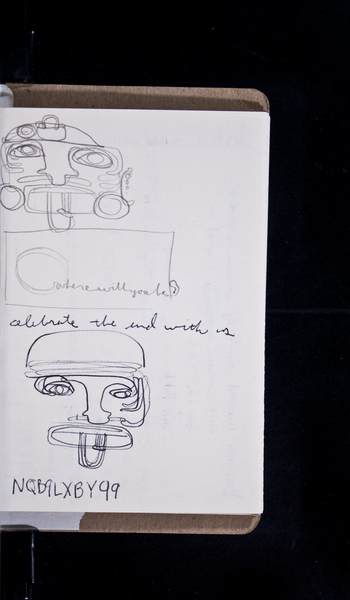 wherewillyoube?
celebrate the end with us
NQB9LXBY99